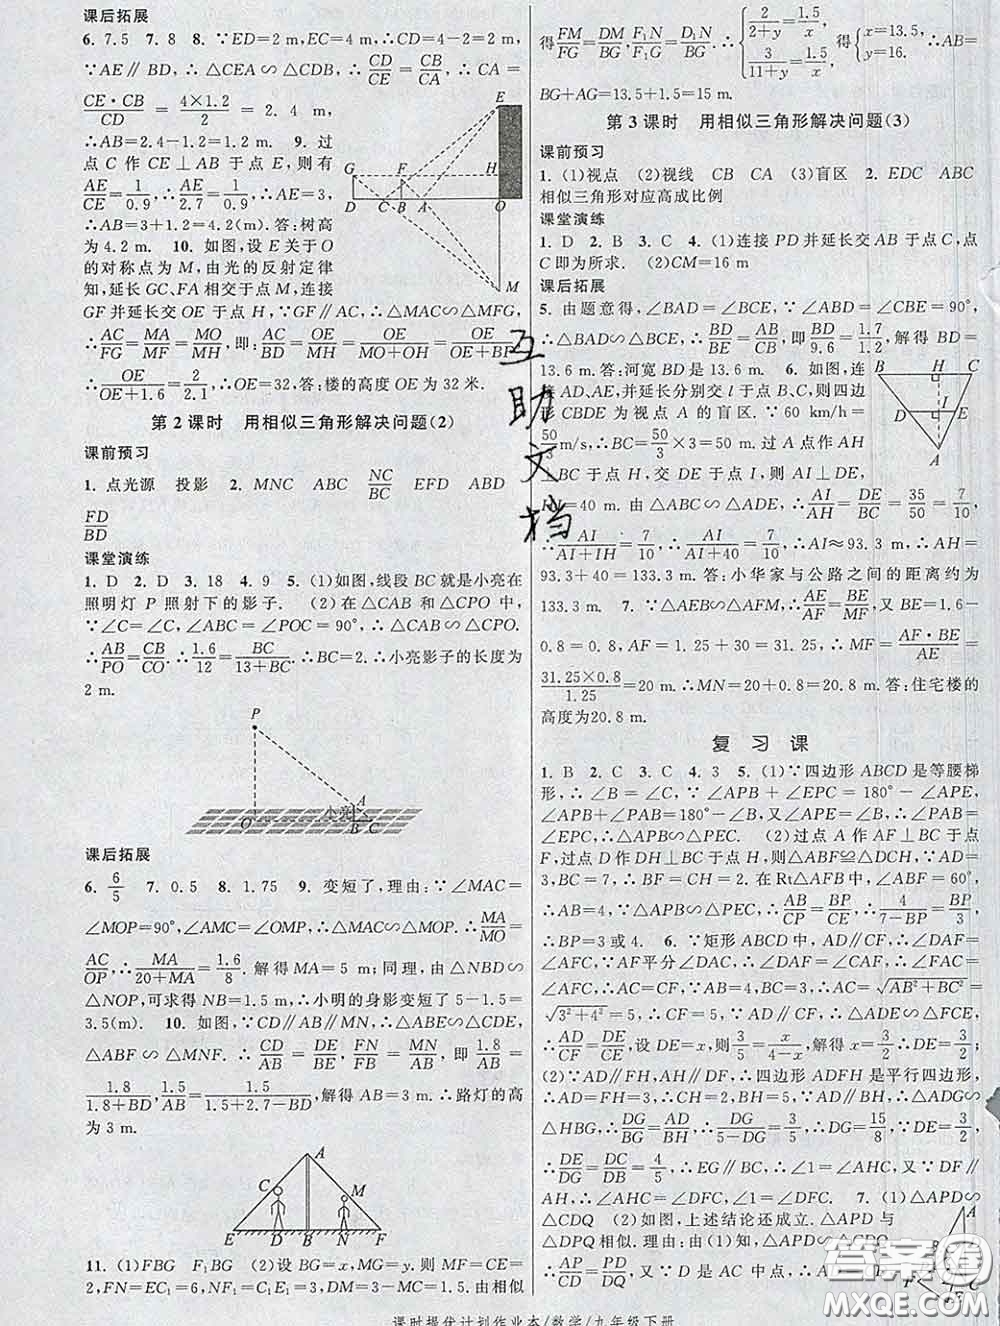 课后拓展
6. 7.5　7. 8　8. ∵ED=2 m,EC=4 m,∴CD=4-2=2 m,
∵AE∥BD,∴△CEA∽△CDB,∴CD/CE=CB/CA,∴CA=
CE·CB/CD=4×1.2/2=2.4 m,
∴AB=2.4-1.2=1.2 m　9. 过
点 C 作 CE⊥AB 于点 E,则有
AE/CE=1/0.9,∴AE/2.7=1/0.9,∴AE=3,
∴AB=3+1.2=4.2(m).答:树高
为 4.2 m.　10. 如图,设 E 关于 O
的对称点为 M,由光的反射定律
知,延长 GC、FA 相交于点 M,连接
GF 并延长交 OE 于点 H,∵GF∥AC,∴△MAC∽△MFG,
∴AC/FG=MA/MF=MO/MH,即:AC/BD=OE/MH=OE/(MO+OH)=OE/(OE+BF),
∴OE/(OE+1.6)=2/2.1,∴OE=32,答:楼的高度 OE 为 32 米.
E
G F H
D C B A O
M
第 2 课时　用相似三角形解决问题(2)
课前预习
1. 点光源　投影　2. MNC　ABC　NC/BC　EFD　ABD
FD/BD
课堂演练
1. D　2. D　3. 18　4. 9　5. (1)如图,线段 BC 就是小亮在
照明灯 P 照射下的影子.　(2)在△CAB 和△CPO 中,
∵∠C=∠C,∠ABC=∠POC=90°,∴△CAB∽△CPO.
∴AB/PO=CB/CO.∴1.6/12=BC/(13+BC).∴BC=2.∴小亮影子的长度为
2 m.
P
小亮 A
O B C
课后拓展
6. 6/5　7. 0.5　8. 1.75　9. 变短了,理由:∵∠MAC=
∠MOP=90°,∠AMC=∠OMP,∴△MAC∽△MOP,∴MA/MO=
AC/OP,∴MA/(20+MA)=1.6/8.解得 MA=5 m;同理,由△NBD∽
△NOP,可求得 NB=1.5 m,∴小明的身影变短了 5-1.5=
3.5(m).　10. 如图,∵CD∥AB∥MN,∴△ABE∽△CDE,
△ABF∽△MNF.∴CD/AB=DE/BE,FN/FB=MN/AB,即1.8/AB=
1.8/(1.8+BD),1.5/AB=1.5/(1.5+2.7-BD),解得 AB=3 m.∴路灯的高
为 3 m.
A
C M
E D B N F
11. (1)FBG　F₁BG　(2)设 BG=x,MG=y.则 FM=CE=
2,FN=EC₁=6,GN=y-5,DM=3-MC=1.5.由相似
得FM/FG=DM/BG,F₁N/F₁G=D₁N/BG.∴{2/(2+y)=1.5/x, 3/(11+y)=1.5/x, 得{x=13.5, y=16. ∴AB=
BG+AG=13.5+1.5=15 m.
第 3 课时　用相似三角形解决问题(3)
课前预习
1. (1)视点　(2)视线　CB　CA　(3)盲区　2. EDC　ABC
相似三角形对应高成比例
课堂演练
1. D　2. B　3. C　4. (1)连接 PD 并延长交 AB 于点 C,点
C 即为所求.　(2)CM=16 m
课后拓展
5. 由题意得,∠BAD=∠BCE,∵∠ABD=∠CBE=90°,
∴△BAD∽△BCE,∴BD/BE=AB/CB,即BD/9.6=1.7/1.2,解得 BD=
13.6 m.答:河宽 BD 是 13.6 m.　6. 如图,连
接 AD、AE,并延长分别交 l 于点 B、C,则四边
形 CBDE 为视点 A 的盲区.∵60 km/h=
50/3 m/s,∴BC=50/3×3=50 m.过点 A 作 AH
⊥BC 于点 H,交 DE 于点 I,则 AI⊥DE,
=40 m.由△ABC∽△ADE,∴AI/AH=DE/BC=35/50=7/10
B H C
D I E
A
∴AI/(AI+IH)=7/10,∴AI/(AI+40)=7/10,∴AI≈93.3 m,∴AH=
93.3+40=133.3 m.答:小华家与公路之间的距离约为
133.3 m.　7. ∵△AEB∽△AFM,∴AE/AF=BE/MF,又 BE=1.6-
0.8=0.8,AF=1.25+30=31.25,∴MF=AF·BE/AE=
31.25×0.8/1.25=20 m.∴MN=20+0.8=20.8 m.答:住宅楼的
高度为20.8 m.
复 习 课
1. B　2. C　3. C　4. 3　5. (1)∵四边形 ABCD 是等腰梯
形,∴∠B=∠C,∵∠APB+∠EPC=180°-∠APE,
∠APB+∠PAB=180°-∠B,又∠APE=∠B,∴∠PAB=
∠EPC,∴△APB∽△PEC.　(2)过点 A 作 AF⊥BC 于点
F,过点 D 作 DH⊥BC 于点 H,则△ABF≌△DCH,∵AD=
3,BC=7,∴BF=CH=2.在Rt△AFB 中,∠ABF=60°,
∴AB=4,∵△APB∽△PEC,∴AB/CP=BP/CE,∴4/(7-BP)=BP/3,
∴BP=3或4.　6. ∵矩形 ABCD 中,AD∥CF,∴∠DAF=
∠AFC,∵AF平分∠DAC,∴∠DAF=∠CAF,∴∠FAC=
∠AFC,∴AC=CF,∵AB=4,BC=3,∴AC=√(AB²+BC²)=
√(3²+4²)=5,∴CF=5,∵AD∥CF,∴△ADE∽△FCE,
∴AD/CF=DE/CE,设 DE=x,则3/5=x/(4-x),解得 x=3/2,∴DE=3/2;
(2)∵AD∥FH,AF∥DH,∴四边形 ADHF 是平行四边形,
∴AD=FH=3,∴CH=2,BH=5,∵AD∥BH,∴△ADG∽
△HBG,∴DG/BG=AD/BH,∴DG/(5-DG)=3/5,∴DG=15/8,∵DE=3/2,
∴DE/DG=DC/DB=4/5,∴EG∥BC,∴∠1=∠AHC,又∵DF∥
AH,∴∠AHC=∠DFC,∠1=∠DFC.　7. (1)△APD∽
△CDQ　(2)如图,上述结论还成立.∵△APD 与
△DPQ 相似.理由:由(1)知,△APD∽△CDQ,
∴AP/CD=PD/DQ,又∵D 是 AC 中点,∴AD=CD,
互助文档
答案圈
课时提优计划作业本/数学/九年级下册